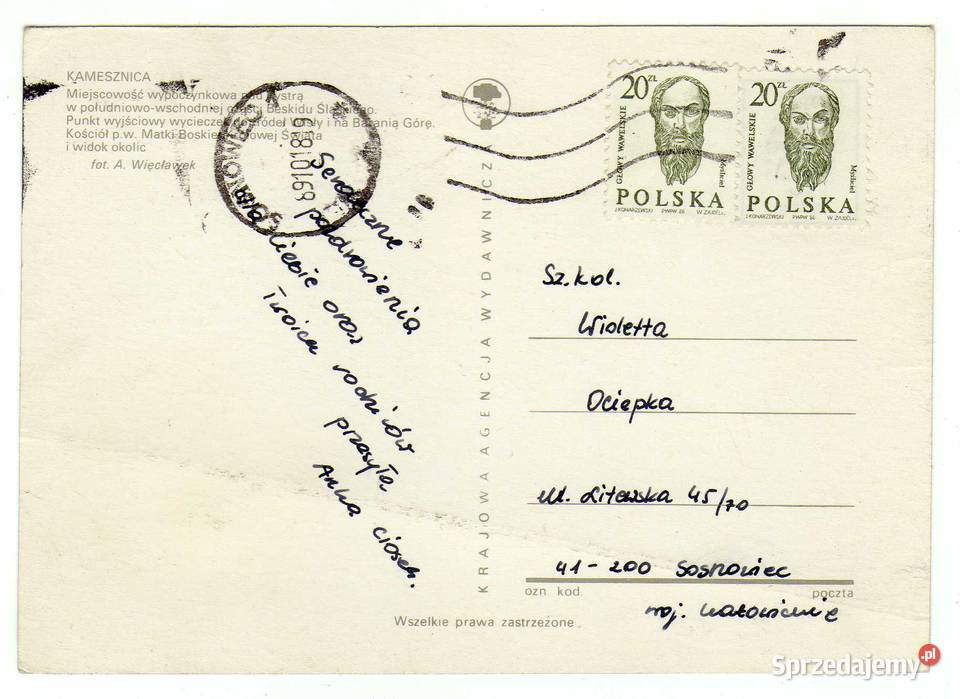 KAMESZNICA
Miejscowość wypoczynkowa nad Bystrą
w południowo-wschodniej części Beskidu Śląskiego.
Punkt wyjściowy wycieczek do źródeł Wisły i na Baranią Górę.
Kościół p.w. Matki Boskiej Królowej Świata
i widok okolic
fot. A. Więcławek
Serdeczne
pozdrowienia
dla Ciebie oraz
Twoich rodziców
przesyła
Anka Ciosek.
KRAJOWA AGENCJA WYDAWNICZ
20 ZŁ
GŁOWY WAWELSKIE
Myśliciel
POLSKA
J.KONARZEWSKI PWPW 86 W.ZAJDEL
20 ZŁ
GŁOWY WAWELSKIE
Myśliciel
POLSKA
J.KONARZEWSKI PWPW 86 W.ZAJDEL
Sz. kol.
Wioletta
Ociepka
ul. Litewska 45/70
41-200 Sosnowiec
ozn. kod.
poczta
woj. katowickie
Wszelkie prawa zastrzeżone
Sprzedajemy.pl